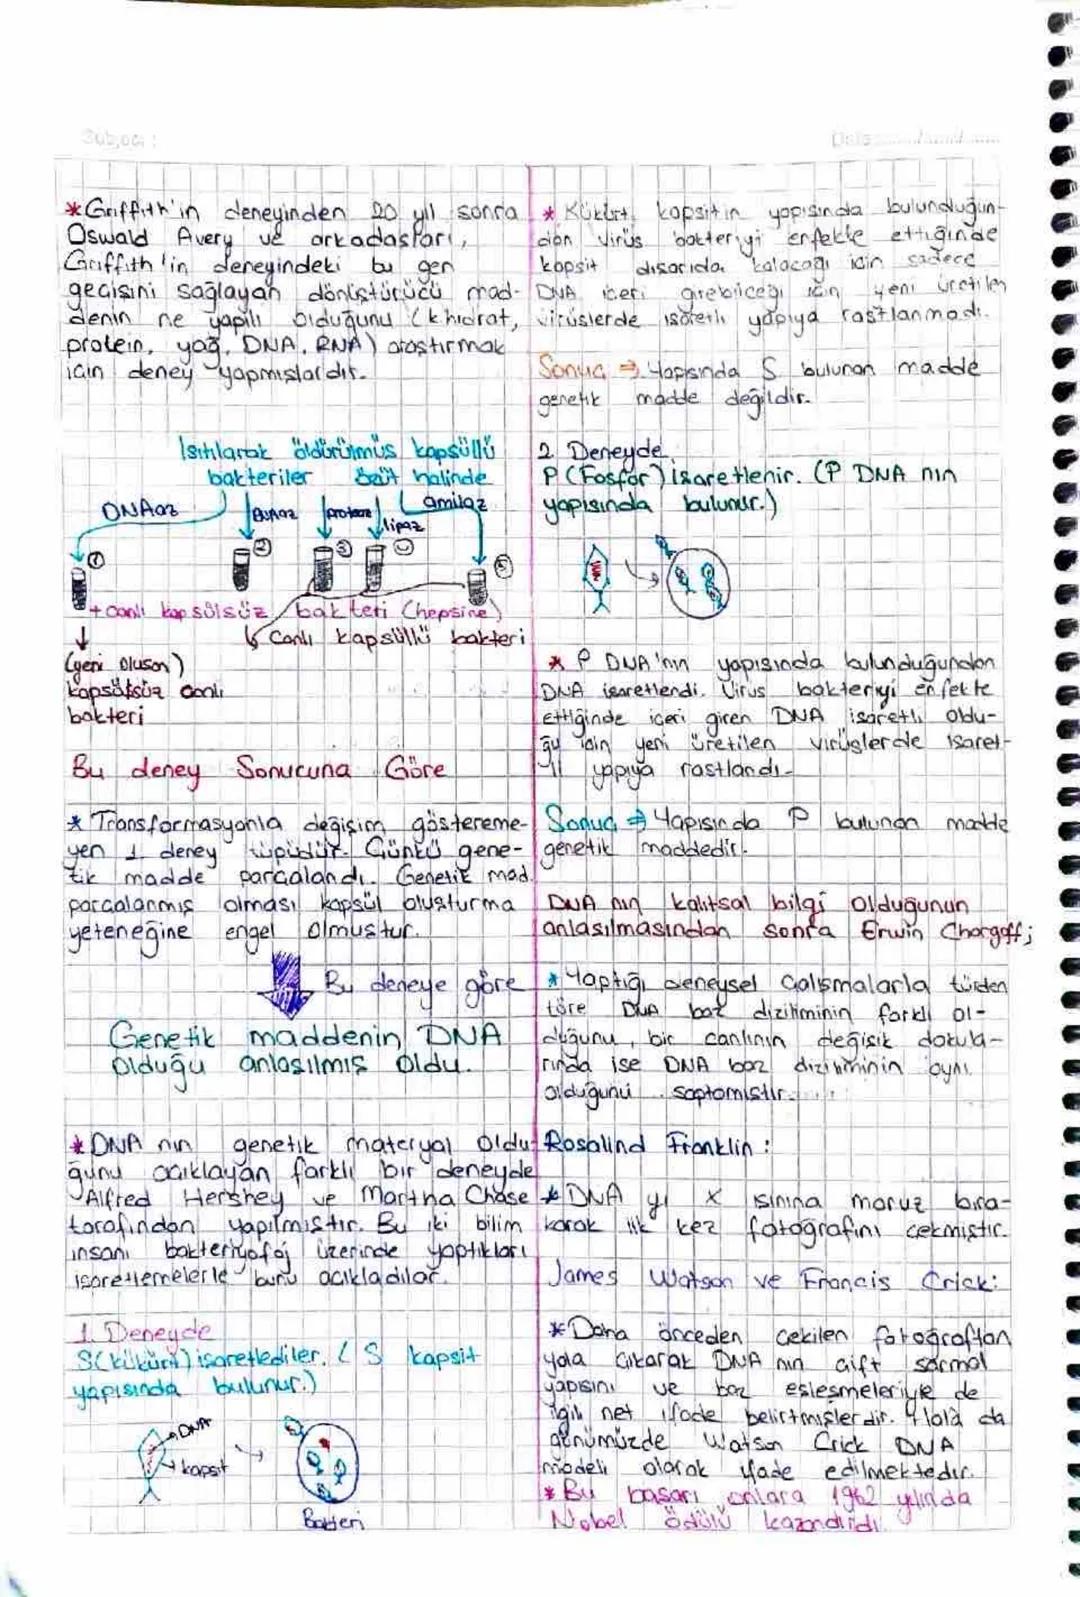 Subject :
Date
*Griffith'in deneyinden 20 yıl sonra
Oswald Avery ve arkadaşları,
Griffith'in deneyindeki bu gen
geçişini sağlayan dönüştürücü mad-
denin ne yapılı olduğunu (khidrat,
protein, yağ, DNA, RNA) araştırmak
için deney yapmışlardır.
Isıtılarak öldürülmüş kapsüllü
bakteriler özüt halinde
DNAaz RNAaz proteaz lipaz amilaz
1 2 3 4 5
+canlı kapsülsüz bakteri (hepsine)
Canlı kapsüllü bakteri
(yeni oluşan)
kapsülsüz canlı
bakteri
Bu deney Sonucuna Göre
* Transformasyonla değişim göstereme-
yen 1. deney tüpüdür. Çünkü gene-
tik madde parçalandı. Genetik mad.
parçalanmış olması kapsül oluşturma
yeteneğine engel olmuştur.
Bu deneye göre
Genetik maddenin DNA
olduğu anlaşılmış oldu.
* DNA nın genetik materyal oldu-
ğunu açıklayan farklı bir deneyde
Alfred Hershey ve Martha Chase
tarafından yapılmıştır. Bu iki bilim
insanı bakteriyofaj üzerinde yaptıkları
işaretlemelerle bunu açıkladılar.
1. Deneyde
S(kükürt) işaretlediler. (S kapsit
yapısında bulunur.)
DNA
kapsit
Bakteri
* Kükürt, kapsitin yapısında bulunduğun-
dan virüs bakteriyi enfekte ettiğinde
kapsit dışarıda kalacağı için sadece
DNA içeri girebileceği için yeni üretilen
virüslerde işaretli yapıya rastlanmadı.
Sonuç ⇒ Yapısında S bulunan madde
genetik madde değildir.
2. Deneyde;
P (Fosfor) işaretlenir. (P DNA nın
yapısında bulunur.)
* P DNA'nın yapısında bulunduğundan
DNA işaretlendi. Virüs bakteriyi enfekte
ettiğinde içeri giren DNA işaretli oldu-
ğu için yeni üretilen virüslerde işaret-
li yapıya rastlandı.
Sonuç ⇒ Yapısında P bulunan madde
genetik maddedir.
DNA nın kalıtsal bilgi olduğunun
anlaşılmasından sonra Erwin Chargaff;
* Yaptığı deneysel çalışmalarla türden
türe DNA baz diziliminin farklı ol-
duğunu, bir canlının değişik dokula-
rında ise DNA baz diziliminin aynı
olduğunu saptamıştır.
Rosalind Franklin :
* DNA yı X ışınına maruz bıra-
karak ilk kez fotoğrafını çekmiştir.
James Watson ve Francis Crick:
* Daha önceden çekilen fotoğraftan
yola çıkarak DNA nın çift sarmal
yapısını ve baz eşleşmeleriyle de
ilgili net ifade belirtmişlerdir. Hala da
günümüzde Watson Crick DNA
modeli olarak ifade edilmektedir.
* Bu başarı onlara 1962 yılında
Nobel Ödülü kazandırdı.